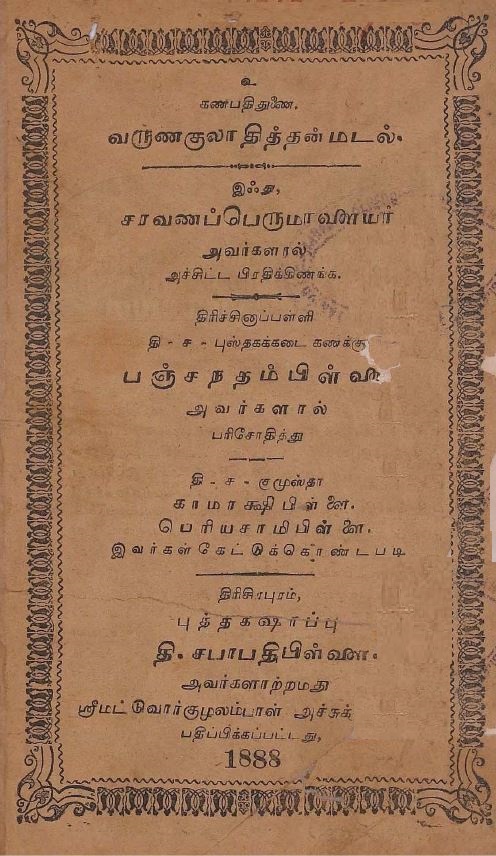 உ
கணபதிதுணை.
வருணகுலாதித்தன்மடல்.
இஃது,
சரவணப்பெருமாளையர்
அவர்களால்
அச்சிட்ட பிரதிக்கிணங்க.
திரிச்சினாப்பள்ளி
தி - ச - புஸ்தகக்கடை கணக்கு
பஞ்சநதம்பிள்ளை
அவர்களால்
பரிசோதித்து
தி - ச - குமுஸ்தா
காமாக்ஷிபிள்ளை.
பெரியசாமிபிள்ளை.
இவர்கள்கேட்டுக்கொண்டபடி
திரிசிரபுரம்,
புத்தகஷாப்பு
தி. சபாபதிபிள்ளை.
அவர்களாற்றமது
ஸ்ரீமட்டுவார்குழலம்பாள் அச்சுக்
பதிப்பிக்கப்பட்டது,
1888